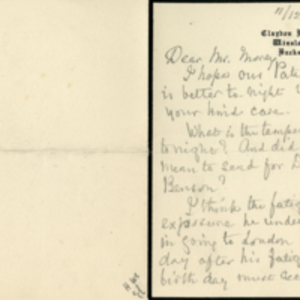 11/12
Claydon
Winslow
Bucks
Dear Mr. Morey
I hope our Pati
is better to-night
your kind care.
What is the temper
to night? And did
mean to send for D
Benson?
I think the fatig
exposure he under
in going to London
day after his fatig
birth day must